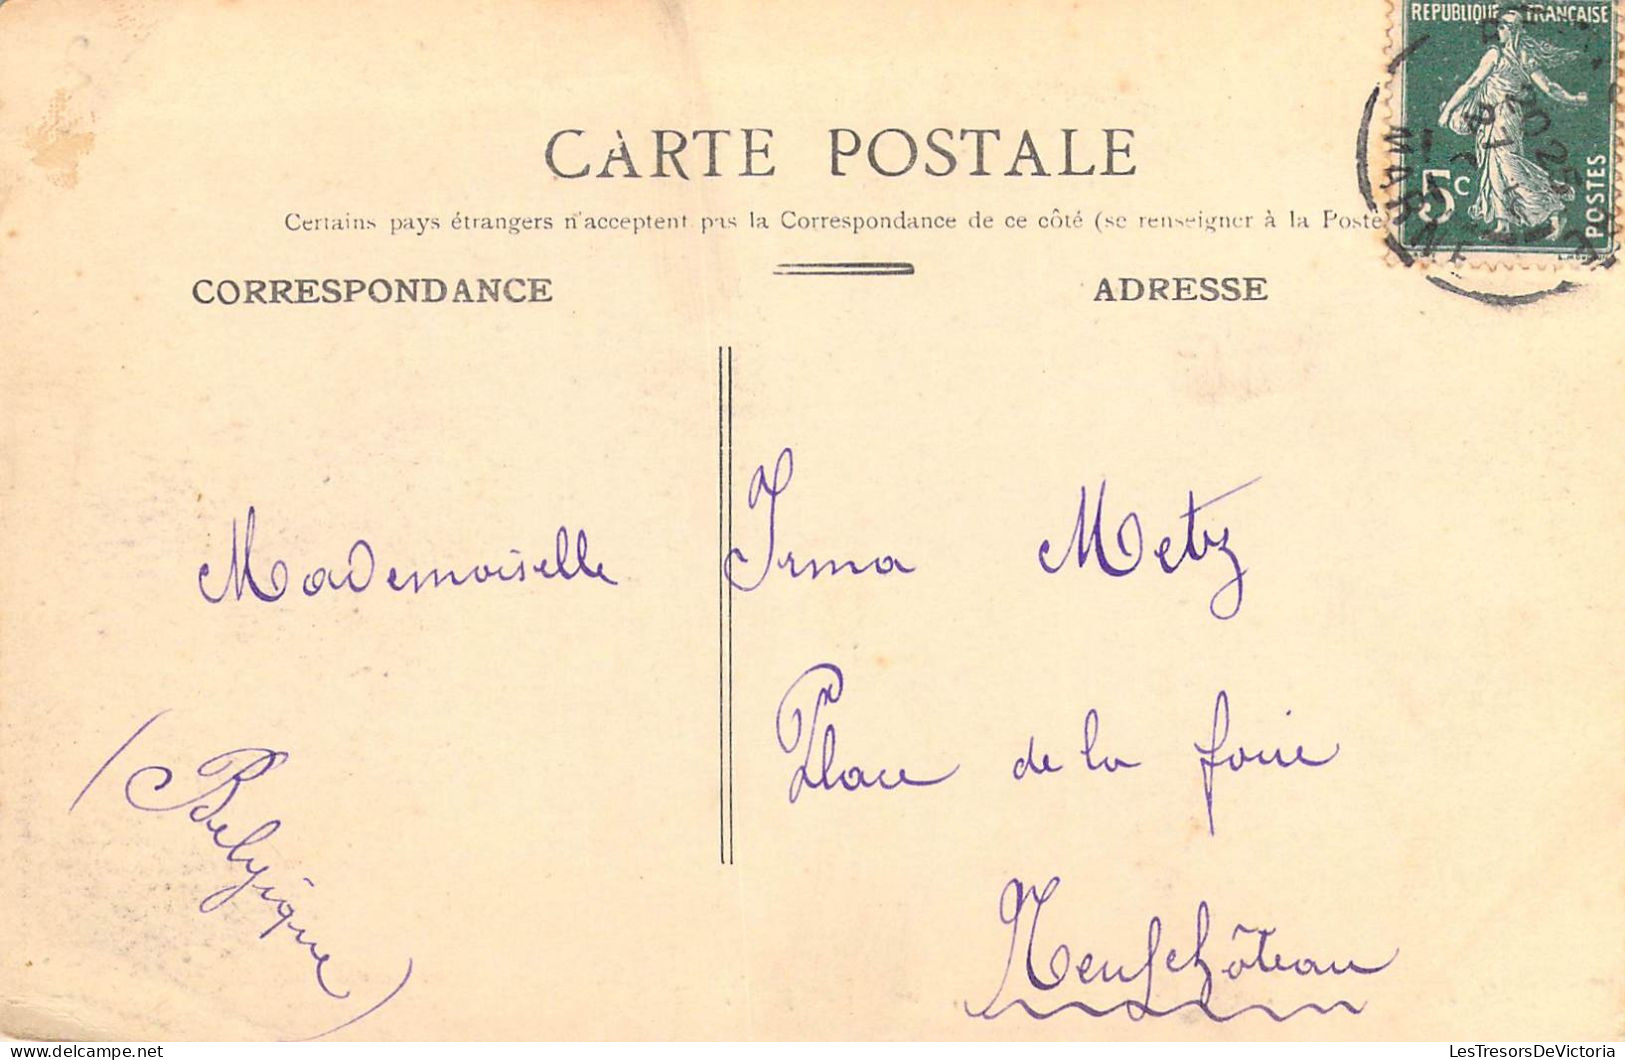 REPUBLIQUE FRANÇAISE
5c POSTES
MARNE
CARTE POSTALE
Certains pays étrangers n'acceptent pas la Correspondance de ce côté (se renseigner à la Poste
CORRESPONDANCE
ADRESSE
Mademoiselle Irma Metz
Place de la foire
(Belgique)
Neufchâteau
LesTresorsDeVictoria